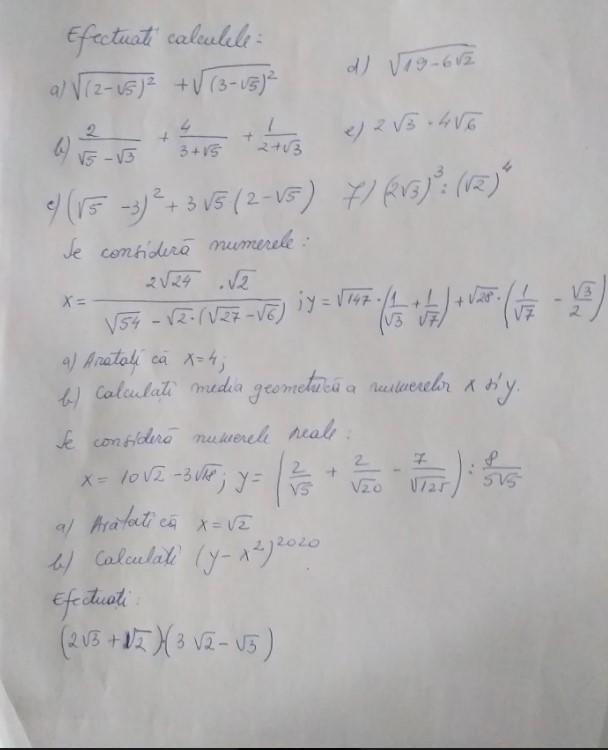 Efectuati calculele:
a) √(2-√5)² + √(3-√5)² d) √19-6√2
b) 2/(√5-√3) + 4/(3+√5) + 1/(2+√3) e) 2√3 · 4√6
c) (√5 -3)² + 3√5(2-√5) 7) (2√3)³ : (√2)⁴
Se consideră numerele:
x = (2√24 · √2)/(√54 - √2·(√27-√6)) ; y = √147·(1/√3 + 1/√7) + √28·(1/√7 - √3/2)
a) Arătați că x=4;
b) Calculați media geometrică a numerelor x și y.
Se consideră numerele reale:
x = 10√2 -3√18; y = (2/√5 + 2/√20 - 7/√125) : 8/5√5
a) Arătati că x=√2
b) Calculăti (y-x²)²⁰²⁰
Efectuați:
(2√3+√2)·(3√2-√3)